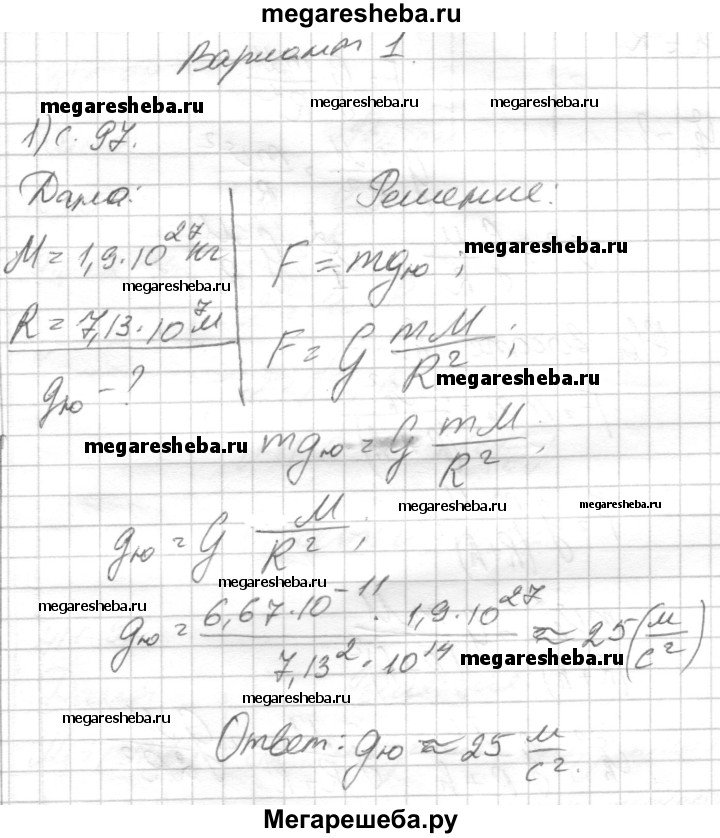 megaresheba.ru
Вариант 1.
megaresheba.ru megaresheba.ru megaresheba.ru
1) с. 97.
Дано: Решение:
M = 1,9·10²⁷ кг F = mgю ; megaresheba.ru
megaresheba.ru
R = 7,13·10⁷ м F = G mM/R² ;
gю - ? megaresheba.ru
megaresheba.ru mgю = G mM/R² ;
megaresheba.ru megaresheba.ru
gю = G M/R² ;
megaresheba.ru
megaresheba.ru
gю = 6,67·10⁻¹¹ · 1,9·10²⁷ / 7,13²·10¹⁴ ≈ 25 (м/с²)
megaresheba.ru
megaresheba.ru
megaresheba.ru
Ответ: gю ≈ 25 м/с².
Мегарешеба.ру